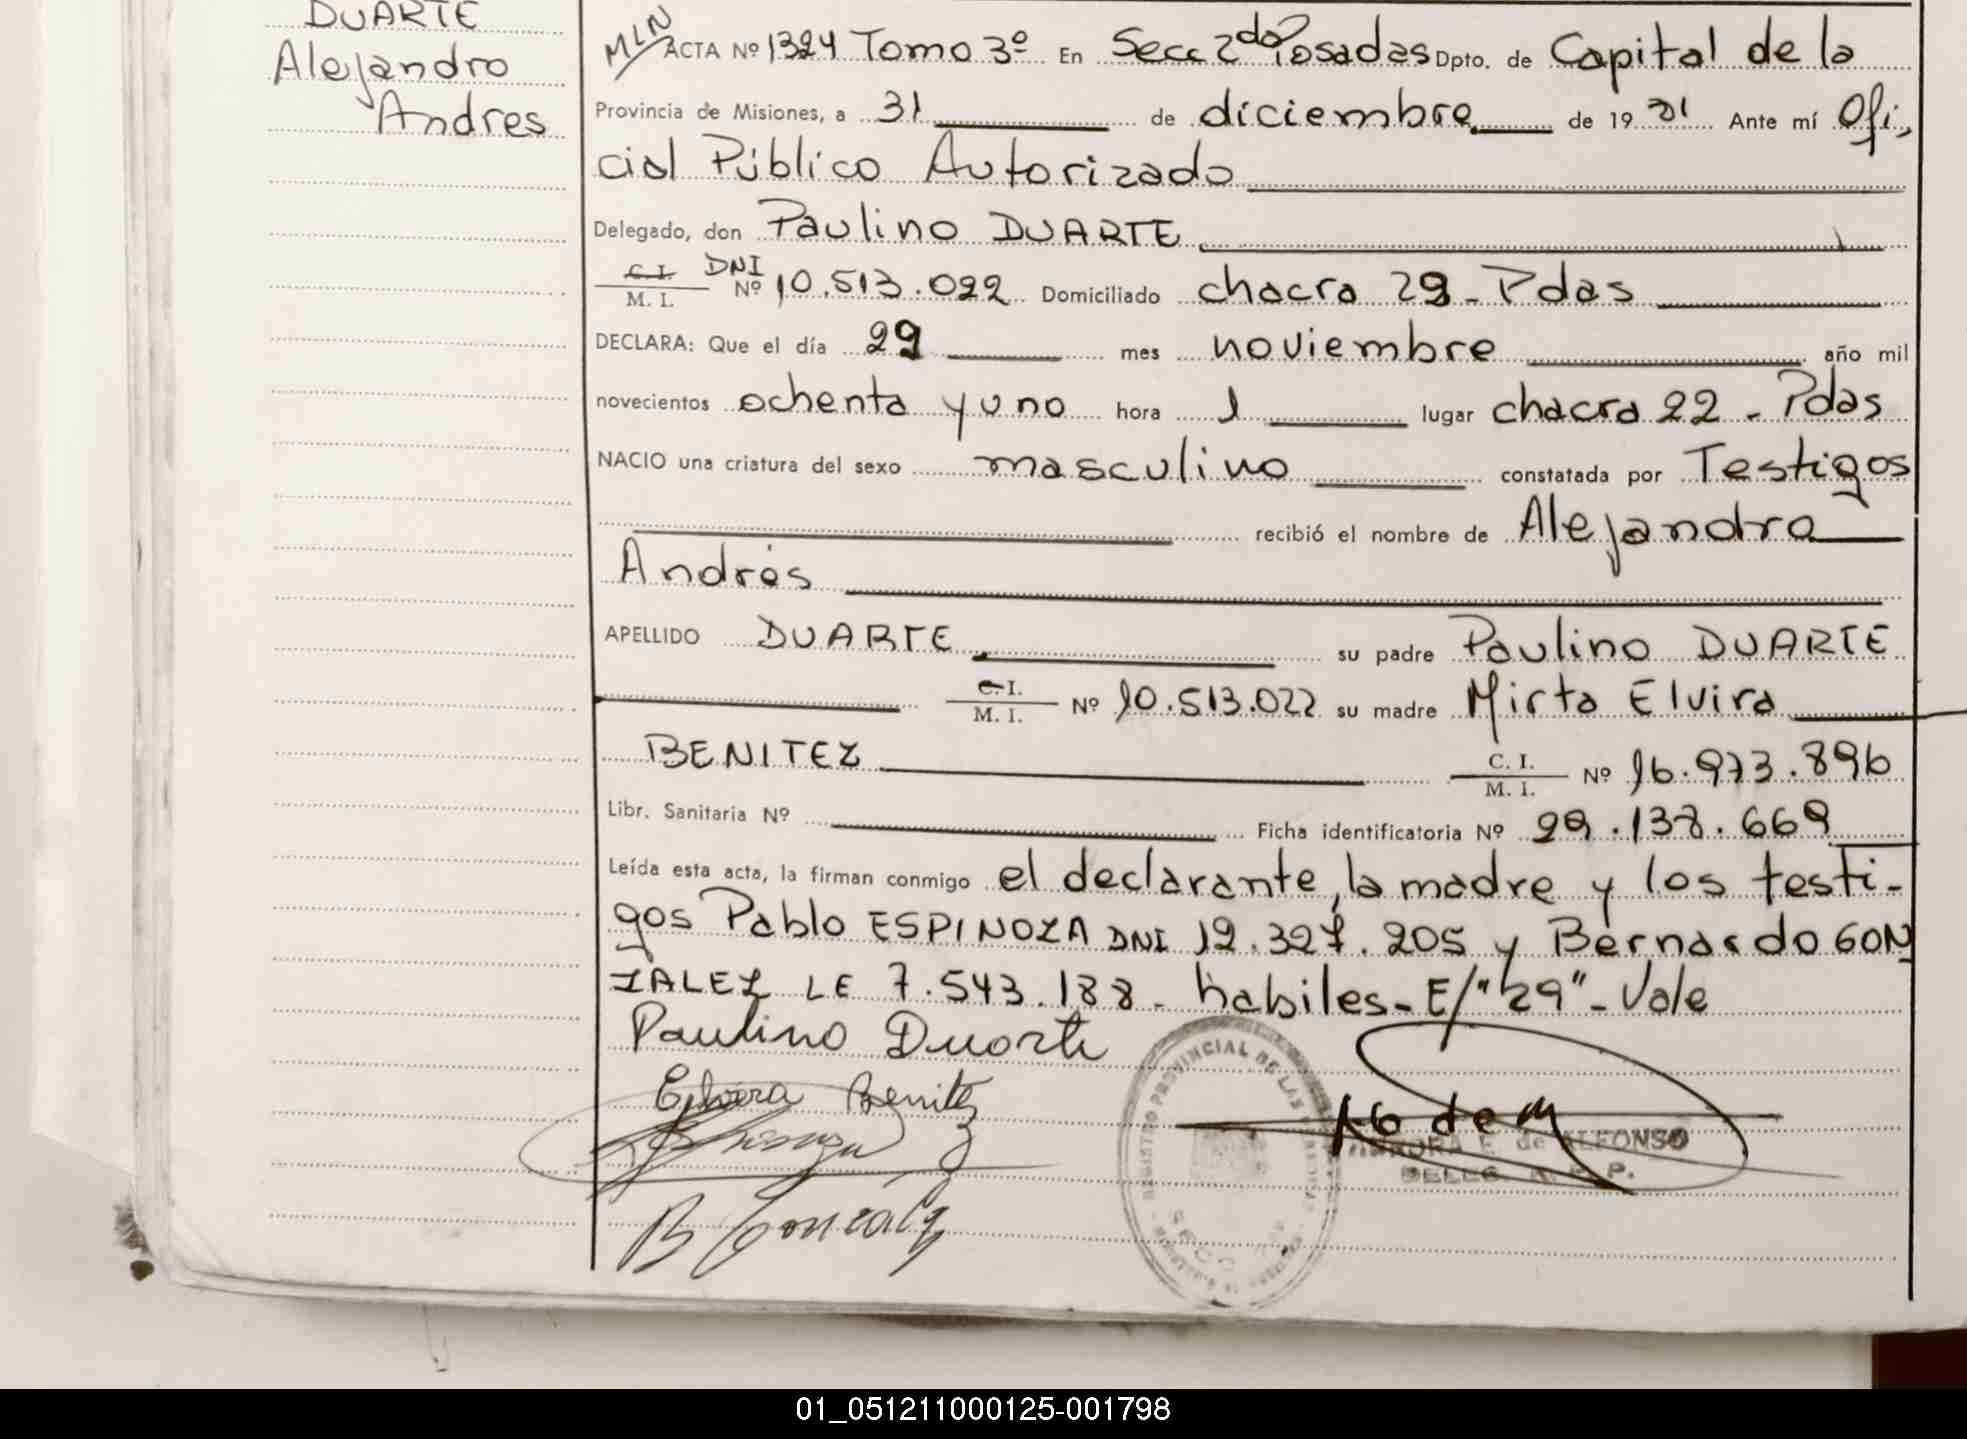 DUARTE
Alejandro
Andres
MLN ACTA Nº 1324 Tomo 3º En Secc 2da Posadas Dpto. de Capital de la
Provincia de Misiones, a 31 de diciembre de 19 81 Ante mí Ofi,
cial Público Autorizado
Delegado, don Paulino DUARTE
C. I. DNI
M. I. Nº 10.513.022 Domiciliado chacra 29 - Pdas
DECLARA: Que el día 29 mes noviembre año mil
novecientos ochenta y uno hora 1 lugar chacra 22 - Pdas
NACIO una criatura del sexo masculino constatada por Testigos
recibió el nombre de Alejandro
Andrés
APELLIDO DUARTE su padre Paulino DUARTE
C. I.
M. I. Nº 10.513.022 su madre Mirta Elvira
BENITEZ C. I.
M. I. Nº 16.973.896
Libr. Sanitaria Nº Ficha identificatoria Nº 29.138.669
Leída esta acta, la firman conmigo el declarante, la madre y los testi-
gos Pablo ESPINOZA DNI 12.327.205 y Bernardo GON
ZALEZ LE 7.543.188 - habiles - E/"29" - Vale
Paulino Duarte
Elvira Benitez
B Gonzalez
REGISTRO PROVINCIAL DE LAS
E. de ALFONSO
DELEG. R. P. P.
01_051211000125-001798